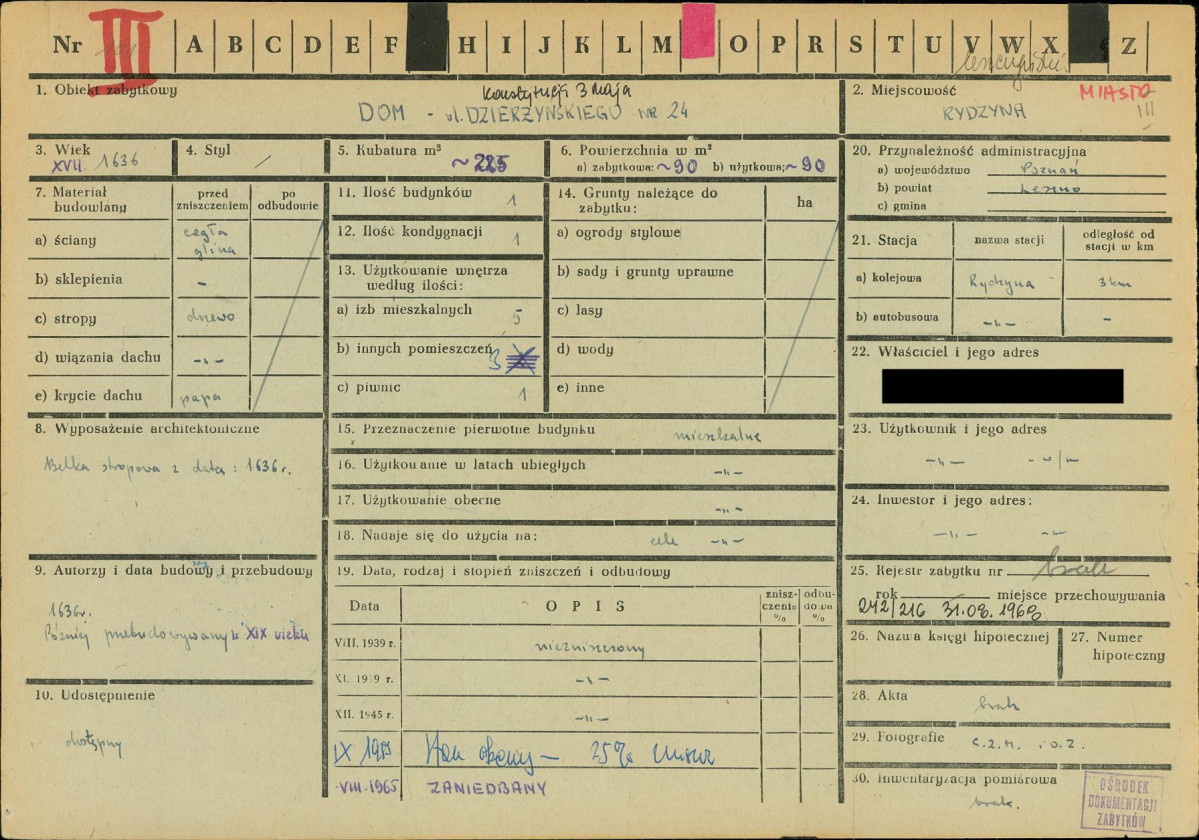 Nr III A B C D E F H I J K L M O P R S T U V W X Z
1. Obiekt zabytkowy
Konstytucji 3 maja
DOM - ul. DZIERŻYŃSKIEGO NR 24
2. Miejscowość
MIASTO
RYDZYNA
III
3. Wiek
XVII. 1636
4. Styl
/
5. Kubatura m³
~ 225
6. Powierzchnia w m²
a) zabytkowa: ~90 b) użytkowa: ~90
7. Materiał budowlany
przed zniszczeniem
po odbudowie
a) ściany
cegła
glina
b) sklepienia
-
c) stropy
drzewo
d) wiązania dachu
-"-
e) krycie dachu
papa
8. Wyposażenie architektoniczne
Belka stropowa z datą: 1636 r.
9. Autorzy i data budowy i przebudowy
1636r.
Później przebudowywany w XIX wieku
10. Udostępnienie
dostępny
11. Ilość budynków
1
12. Ilość kondygnacji
1
13. Użytkowanie wnętrza według ilości:
a) izb mieszkalnych
5
b) innych pomieszczeń
3
c) piwnic
1
14. Grunty należące do zabytku:
ha
a) ogrody stylowe
b) sady i grunty uprawne
c) lasy
d) wody
e) inne
15. Przeznaczenie pierwotne budynku
mieszkalne
16. Użytkowanie w latach ubiegłych
-"-
17. Użytkowanie obecne
-"-
18. Nadaje się do użycia na:
cele -"-
19. Data, rodzaj i stopień zniszczeń i odbudowy
Data
OPIS
zniszczenia %
odbudowa %
VIII. 1939 r.
niezniszczony
XI. 1939 r.
-"-
XII. 1945 r.
-"-
IX 1959
Stan obecny - 25%
VIII. 1965
ZANIEDBANY
20. Przynależność administracyjna
a) województwo Poznań
b) powiat Leszno
c) gmina
21. Stacja
nazwa stacji
odległość od stacji w km
a) kolejowa
Rydzyna
3 km
b) autobusowa
-"-
-
22. Właściciel i jego adres
23. Użytkownik i jego adres
-"- -"-
24. Inwestor i jego adres:
-"- -"-
25. Rejestr zabytku nr brak
rok miejsce przechowywania
242/216 31.08.1968
26. Nazwa księgi hipotecznej
27. Numer hipoteczny
28. Akta
brak
29. Fotografie
C.Z.M. i O.Z.
30. Inwentaryzacja pomiarowa
brak.
OŚRODEK
DOKUMENTACJI
ZABYTKÓW